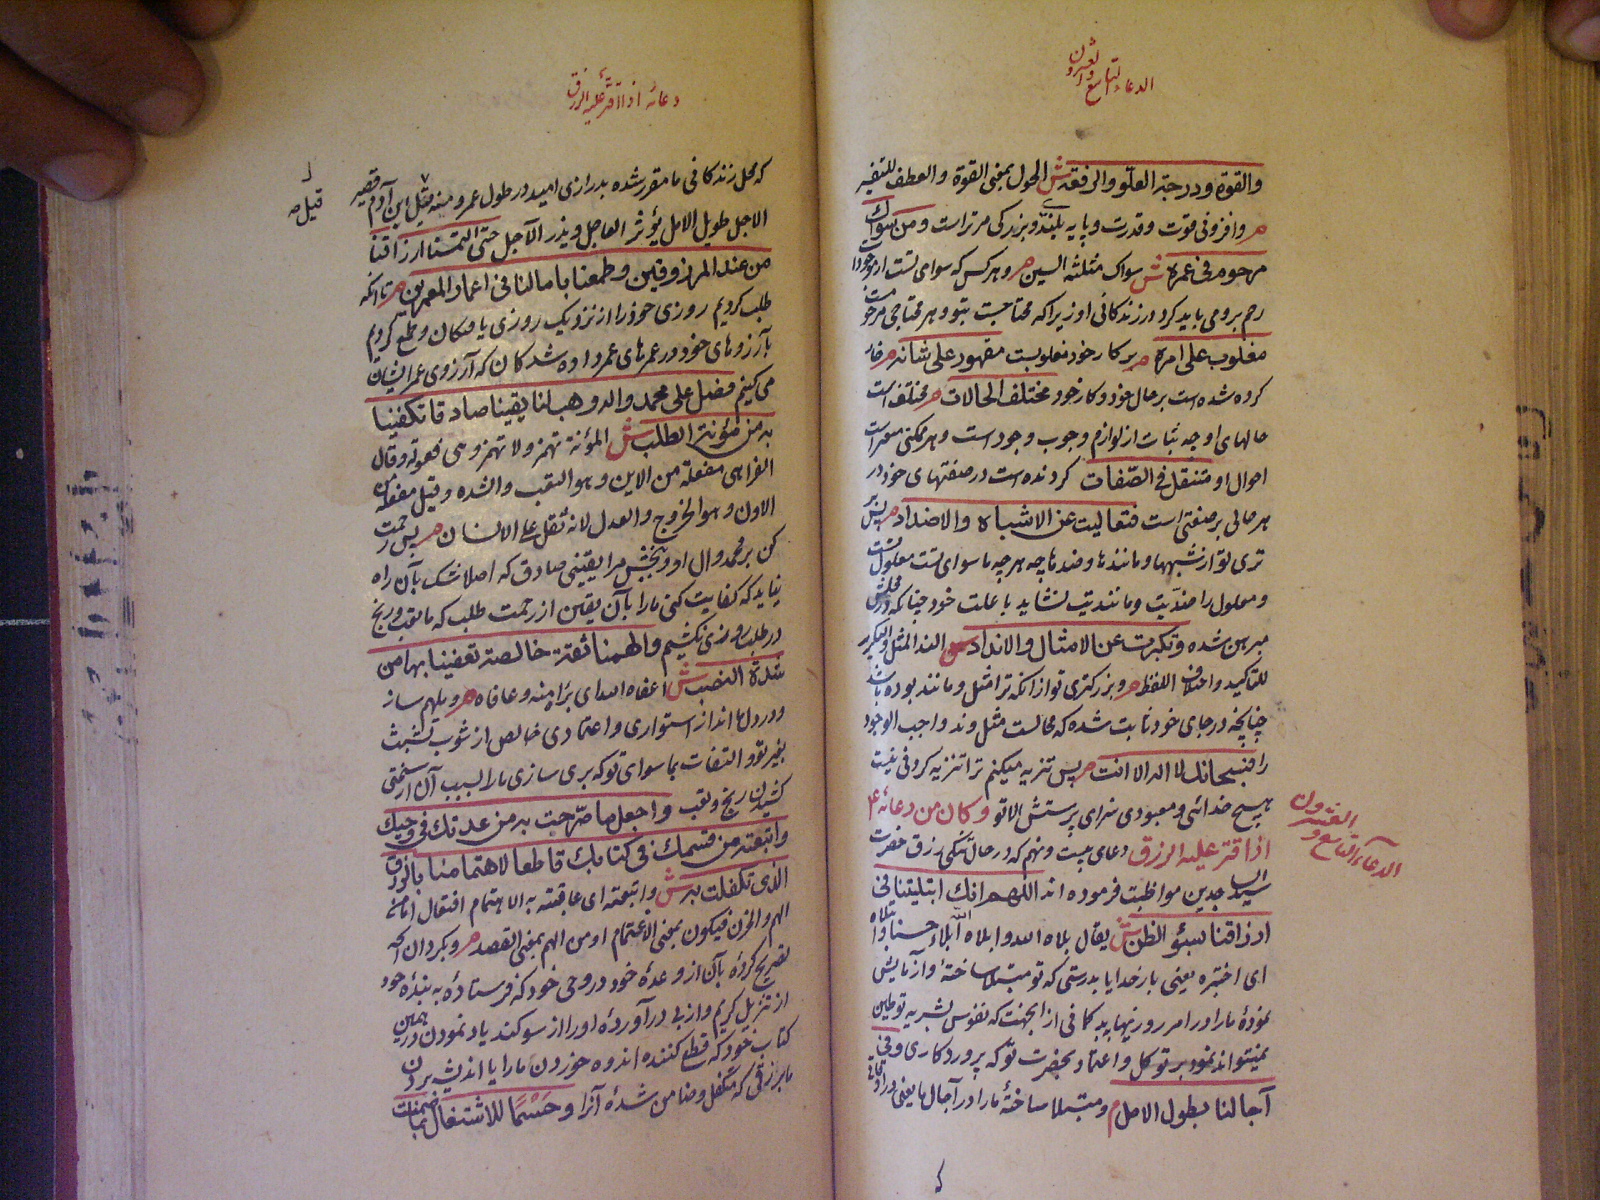 الدعاء التاسع والعشرون
والقوة ودرجة العلو والرفعة ش الحول بمعنى القوة والعطف للتفسير
م وافزونی قوت وقدرت وپایه بلندی وبزرکی مر تراست ومن سواك
مرحوم في عمره ش سواك مثلثة السين م وهر کس که سوای تست از موجودات
رحم بر ومی باید کرد در زندکانی او زیرا که محتاجست بتو وهر محتاجی مرحوم است
مغلوب على امره م بر کار خود مغلوبست مقهور على شانه م قهار
کرده شده است بر حال خود وکار خود مختلف الحالات م مختلف است
حالهای او چه ثبات از لوازم وجوب وجود است وهر ممکنی
احوال او متنقل في الصفات کردنده است در صفتهای خود در
هر حالی بر صفتی است فتعاليت عن الاشباه والاضداد م پس بر
تری تو از شبهها ومانندها وضدها چه هر چه ما سوای تست معلول تست
ومعلول را ضدیت ومانندیت نشاید با علت خود چنانکه در محلش
مبرهن شده وتكبرت عن الامثال والانداد ش الند المثل والتكرير
للتاكيد واختلاف اللفظ م وبزرکتری تو از انکه ترا مثل ومانند بوده باشد
چنانچه در جای خود ثابت شده که محالست مثل وند واجب الوجود
را فسبحانك لا اله الا انت م پس تنزیه میکنم ترا تنزیه کردنی نیست
هیچ خدائی ومعبودی سزای پرستش الا تو وكان من دعائه ع
اذا قتر عليه الرزق دعای بیست ونهم که در حال تنکی رزق حضرت
سید الساجدین مواظبت فرموده اند اللهم انك ابتليتنا في
ارزاقنا بسوء الظن ش يقال بلاه الله وابلاه الله ابلاء حسنا وابتلاه
اى اختبره یعنی بار خدایا بدرستی که تو مبتلا ساختهٔ وآزمایش
نمودهٔ ما را در امر روزیها به بد کمانی از انجهت که نفوس بشریه توطین
نمیتواند نمود بر توکل واعتماد بحضرت تو که پروردکاری وفي
آجالنا بطول الامل م ومبتلا ساختهٔ ما را در آجال ما یعنی
الدعاء التاسع و
العشرون
دعائه اذا قتر عليه الرزق
که محل زندکانی ما مقرر شده بدرازی امید در طول عمر ومنه قيل ابن آدم قصير
الاجل طويل الامل يؤثر العاجل ويذر الآجل حتى التمسنا ارزاقنا
من عند المرزوقين وطمعنا بامالنا في اعمار المعمرين م تا انکه
طلب کردیم روزی خود را از نزدیک روزی یافتکان وطمع کردیم
بآرزوهای خود در عمرهای عمر داده شدکان که آرزوی عمر ایشان
می کنیم فصل على محمد واله وهب لنا يقينا صادقا تكفينا
به من مؤنة الطلب ش المؤنة تهمز ولا تهمز وهى فعولة وقال
الفراء هى مفعلة من الاين وهو التعب والشدة وقيل مفعلة من
الاون وهو الخرج والعدل لانه ثقل على الانسان م پس رحمت
کن بر محمد وال او وببخش مرا یقینی صادق که اصلا شک بآن راه
نیابد که کفایت کنی ما را بآن یقین از زحمت طلب که ما تعب ورنج
در طلب روزی نکشیم والهمنا ثقة خالصة تعفينا بها من
شدة النصب ش اعفاه الله اى براه منه وعافاه م وملهم ساز
ودر دل ما انداز استواری واعتمادی خالص از شوب تشبث
بغیر تو والتفات بما سوای تو که بری سازی ما را بسبب آن از سختی
کشیدن رنج وتعب واجعل ما صرحت به من عدتك في وحيك
واتبعته من قسمك في كتابك قاطعا لاهتمامنا بالرزق
الذى تكفلت به ش واتبعته اى عاقبته به الاهتمام افتعال اما من
الهم والحزن فيكون بمعنى الاغتمام او من الهم بمعنى القصد م وبکردان انچه
تصریح کردهٔ بآن از وعدهٔ خود در وحی خود که فرستادهٔ به بندهٔ خود
از تنزیل کریم واز پی در آوردهٔ او را از سوکند یاد نمودن در همین
کتاب خود که قطع کننده اندوه خوردن ما را یا اندیشه بردن
ما برزقی که متکفل وضامن شدهٔ آنرا وحسما للاشتغال بما ضمنت
قیل ص